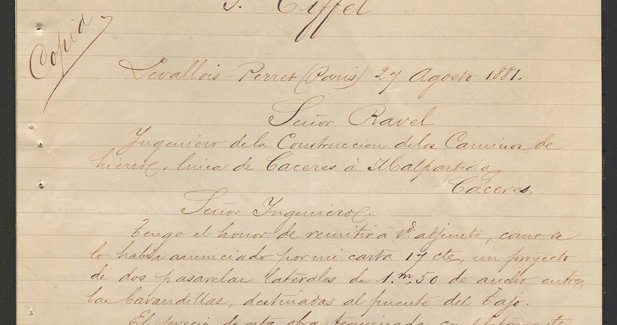 G. Eiffel
Copia
Levallois-Perret (Paris) 27 Agosto 1881.
Señor Ravel
Ingeniero de la Construccion de los Caminos de
hierro, linea de Caceres á Malpartida
Caceres.
Señor Ingeniero.
Tengo el honor de remitir á Vd adjunto, como se
lo habia anunciado por mi carta 17 cte, un proyecto
de dos pasarelas laterales de 1.m50 de ancho entre
las barandillas, destinadas al puente del Tajo.
El precio de esta obra terminada